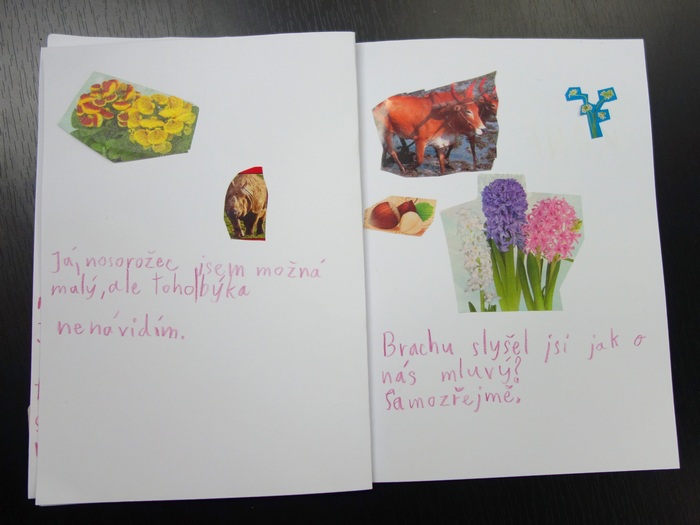 Já, nosorožec jsem možná
malý, ale toho býka
nenávidím.
Brachu slyšel jsi jak o
nás mluvý?
Samozřejmě.